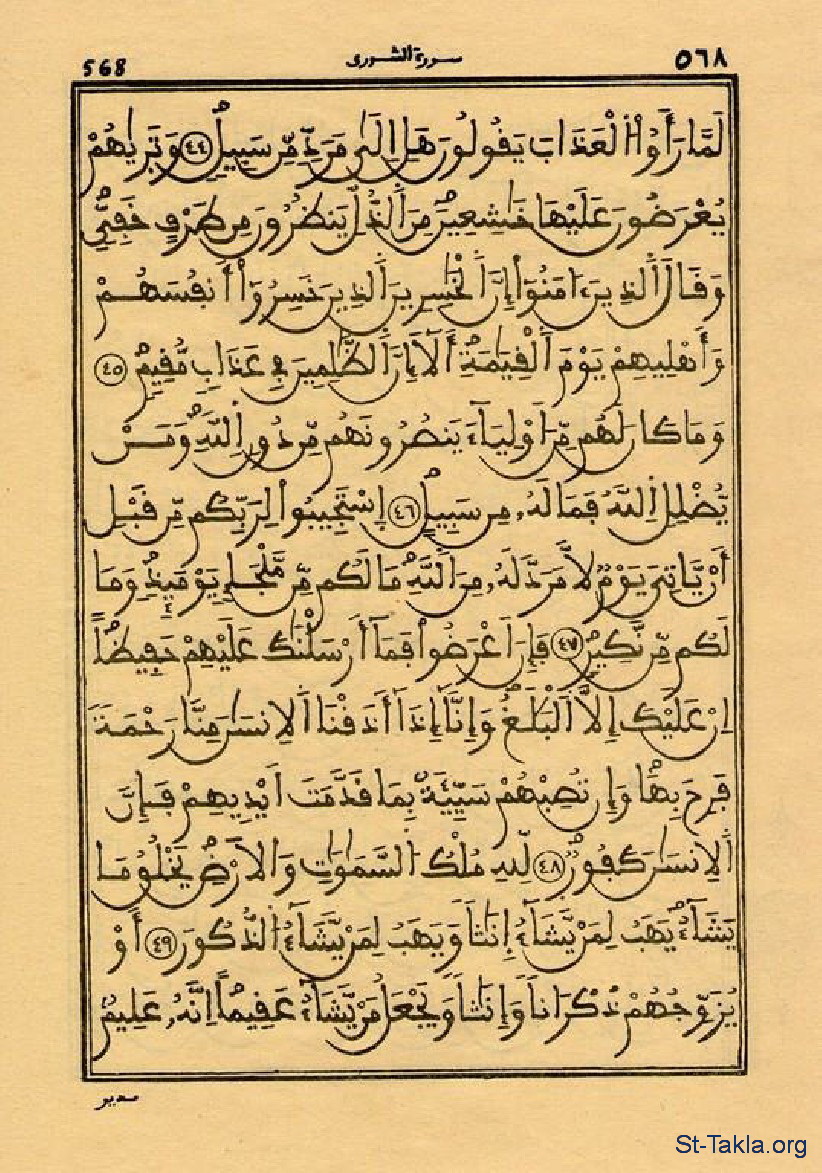 568 سورة الشورى ٥٦٨
لَمَّا رَأَوُا۟ الْعَذَابَ يَقُولُونَ هَلِ الَىٰ مَرَدّٖ مِّن سَبِيلٖ ٤٤ وَتَرَىٰهُمْ
يُعْرَضُونَ عَلَيْهَا خَٰشِعِينَ مِنَ الذُّلِّ يَنظُرُونَ مِن طَرْفٍ خَفِيّٖ
وَقَالَ الذِينَ ءَامَنُوٓا۟ إِنَّ الْخَٰسِرِينَ الذِينَ خَسِرُوٓا۟ أَنفُسَهُمْ
وَأَهْلِيهِمْ يَوْمَ الْقِيَٰمَةِ أَلَآ إِنَّ الظَّٰلِمِينَ فِي عَذَابٖ مُّقِيمٖ ٤٥
وَمَا كَانَ لَهُم مِّنَ اَوْلِيَآءَ يَنصُرُونَهُم مِّن دُونِ اللَّهِ وَمَنْ
يُّضْلِلِ اللَّهُ فَمَا لَهُۥ مِن سَبِيلٍ ٤٦ اِسْتَجِيبُوا۟ لِرَبِّكُم مِّن قَبْلِ
أَنْ يَّاتِيَ يَوْمٞ لَّا مَرَدَّ لَهُۥ مِنَ اللَّهِ مَا لَكُم مِّن مَّلْجَإٖ يَوْمَئِذٖ وَمَا
لَكُم مِّن نَّكِيرٖ ٤٧ فَإِنَ اَعْرَضُوا۟ فَمَآ أَرْسَلْنَٰكَ عَلَيْهِمْ حَفِيظاً
اِنْ عَلَيْكَ إِلَّا اَلْبَلَٰغُ وَإِنَّآ إِذَآ أَذَقْنَا اَلِانسَٰنَ مِنَّا رَحْمَةٗ
فَرِحَ بِهَا وَإِن تُصِبْهُمْ سَيِّئَةُۢ بِمَا قَدَّمَتَ اَيْدِيهِمْ فَإِنَّ
اَلِانسَٰنَ كَفُورٞ ٤٨ لِّلهِ مُلْكُ السَّمَٰوَٰتِ وَالَارْضِ يَخْلُقُ مَا
يَشَآءُ يَهَبُ لِمَنْ يَّشَآءُ إِنَٰثاٗ وَيَهَبُ لِمَنْ يَّشَآءُ الذُّكُورَ ٤٩ أَوْ
يُزَوِّجُهُمْ ذُكْرَاناٗ وَإِنَٰثاٗ وَيَجْعَلُ مَنْ يَّشَآءُ عَقِيماً اِنَّهُۥ عَلِيمٞ
St-Takla.org